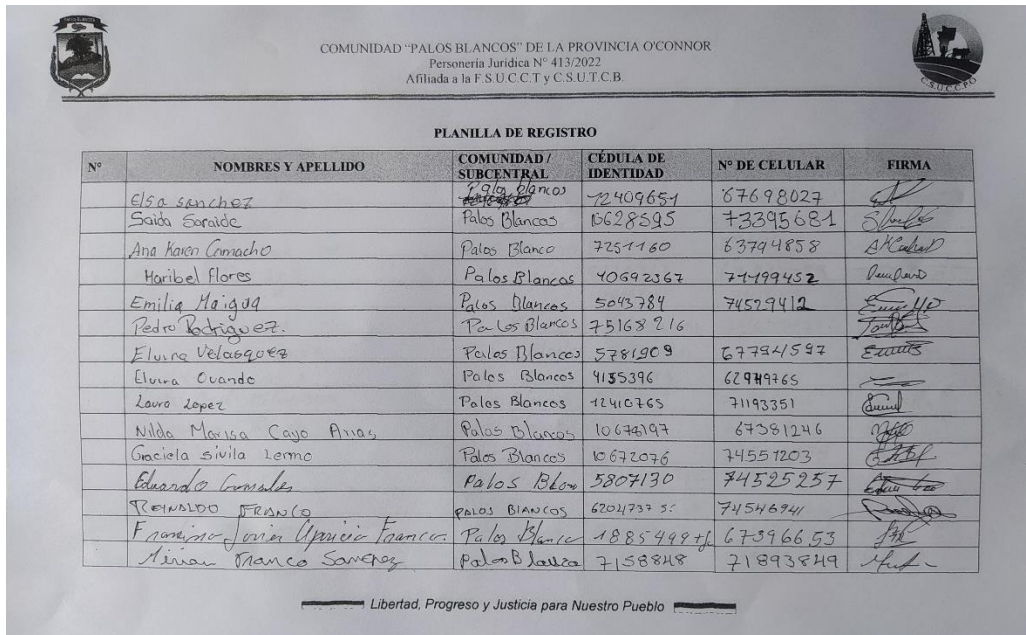 PALOS BLANCOS
COMUNIDAD "PALOS BLANCOS" DE LA PROVINCIA O'CONNOR
Personería Jurídica N° 413/2022
Afiliada a la F.S.U.C.C.T y C.S.U.T.C.B.
C.S.U.C.C.P.O
PLANILLA DE REGISTRO
N° NOMBRES Y APELLIDO COMUNIDAD / SUBCENTRAL CÉDULA DE IDENTIDAD N° DE CELULAR FIRMA
Elsa sanchez Palos blancos 12409651 67698027
Saida Soraide Palos Blancos 10628595 73395681
Ana Karen Camacho Palos Blanco 7251160 63794858
Maribel Flores Palos Blancos 10692367 71199452
Emilia Maigua Palos Blancos 5043784 74529412
Pedro Rodriguez. Palos Blancos 75168216
Elvira Velasquez Palos Blancos 5781909 67794597
Elvira Ovando Palos Blancos 4135396
Lauro Lopez Palos Blancos 12410765 71193351
Nilda Marisa Cayo Arias Palos Blancos 10678197 67381246
Graciela sivila Lermo Palos Blancos 10672076 74551203
Eduardo Palos 5807130 74525257
REINALDO FRANCO PALOS BLANCOS 74546941
Javier Aparicio Franco Palos Blanco 67396653
Mirian Franco Sanchez 7158848 71893849
Libertad, Progreso y Justicia para Nuestro Pueblo